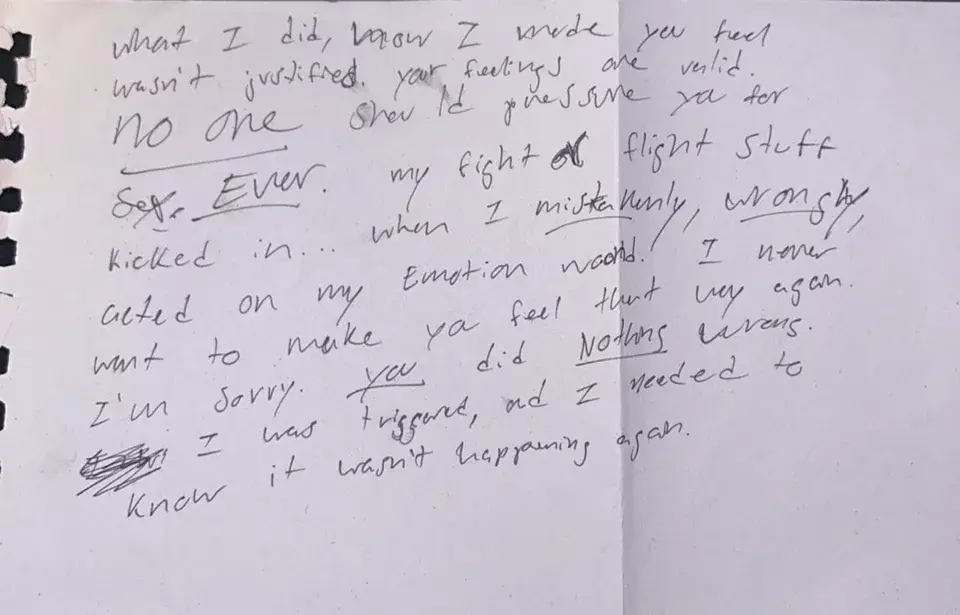 what I did, know I made you feel
wasn't justified. your feelings are valid.
no one should pressure you for
sex. Ever. my fight or flight stuff
kicked in... when I mistakenly, wrongly,
acted on my Emotion I never
want to make you feel that way again.
I'm sorry. you did Nothing wrong.
I was triggered, and I needed to
know it wasn't happening again.